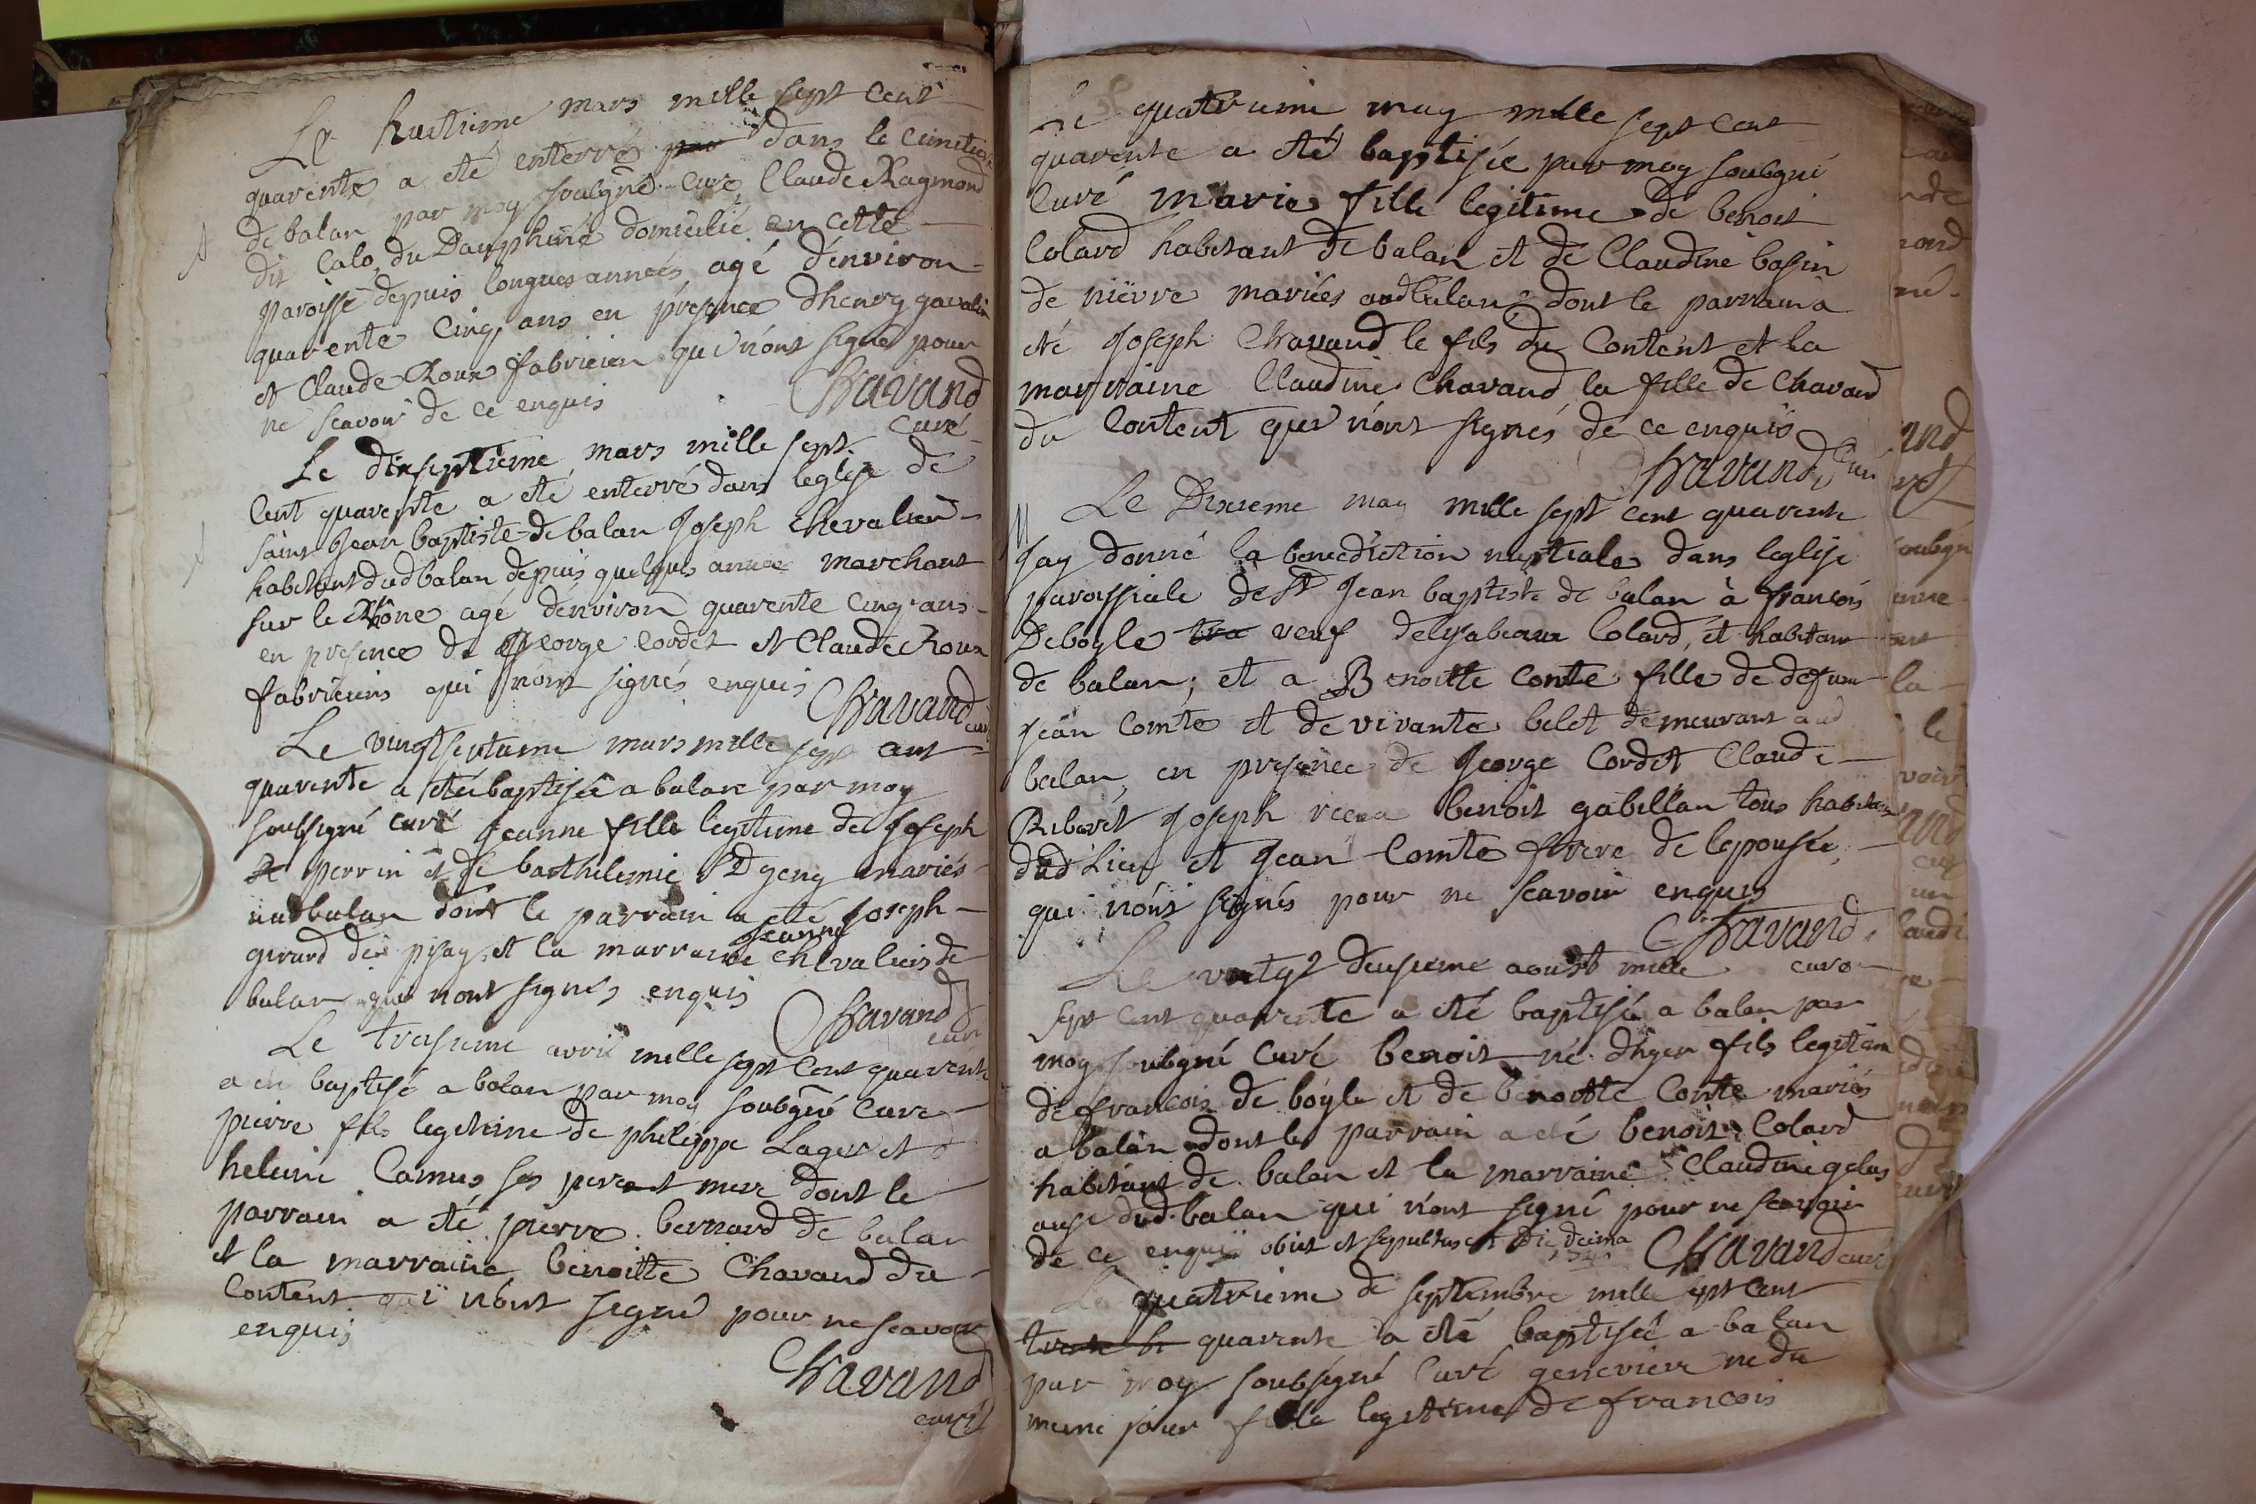 Le huitieme mars mille sept cent
quarente a eté enterré par dans le cimetiere
de balan par moy soubgné curé Claude Ragmond
dit Calo du Dauphiné domicilié en cette
paroisse depuis longues années agé d'environ
quarente cinq ans en presence dhenry gavalin
et Claude Roux fabricien qui n'ont signé pour
ne scavoir de ce enquis
Chavand
curé
Le dixseptieme mars mille sept
Cent quarente a eté enterré dans leglise de
saint Jean baptiste de balan Joseph Chevalier
habitant dudbalan depuis quelques année marchant
sur le Rhône agé denviron quarente cinq ans
en presence de George Cordet et Claude Roux
fabriciens qui n'ont signés enquis
Chavand
curé
Le vingtseptieme mars mille sept cent
quarente a eté baptisée a balan par moy
soubsigné curé Jeanne fille legitime de Joseph
de perrin et de barthelemie Dgeny mariés
audbalan dont le parrain a eté Joseph
girard de pisay et la marraine Jeanne chevalier de
balan qui n'ont signés enquis
Chavand
curé
Le tresieme avril mille sept cent quarente
a eté baptisé a balan par moy soubgné Curé
pierre fils legitime de philippe Lager et
heleine Camus ses pere et mere dont le
parrain a eté pierre bernard de balan
et la marraine benoitte Chavand du
Content qui n'ont signé pour ne scavoir
enquis
Chavand
curé
Le quatrieme may mille sept cent
quarente a eté baptisée par moy soubgné
Curé marie fille legitime de benoit
Colard habitant de balan et de Claudine basin
de nievre mariées audbalan dont le parrain a
eté Joseph Chavand le fils du Content et la
marraine Claudine Chavand la fille de Chavand
du Content qui n'ont signés de ce enquis
Chavand Curé
Le Dixieme may mille sept cent quarente
Jay donné la benediction nuptiale dans leglise
paroissiale de St Jean baptiste de balan à francois
Deboyle veuf delysabeaux Colard, et habitant
de balan; et a Benoitte Conte fille de defunt
Jean Comte et de vivante belet demeurant aud
balan en presence de George Cordet Claude
Ribavet Joseph benoit gabillan tous habitans
dud Lieu et Jean Comte frere de lepousée
qui n'ont signés pour ne scavoir enquis
Chavand
curé
Le vingt deusieme aoust mille
sept cent quarente a eté baptisé a balan par
moy soubgné Curé benoit né dhyer fils legitime
de francois de boyle et de benoitte Conte mariés
a balan dont le parrain a eté benoit Colard
habitant de balan et la marraine Claudine gelas
aussi dud balan qui n'ont signé pour ne scavoir
de ce enquis obiit et sepultus est die decima
Chavand curé
Le quatrieme de septembre mille sept cent
trente quarente a eté baptisée a balan
par moy soubsigné Curé genevieve née du
meme jour fille legitime de francois